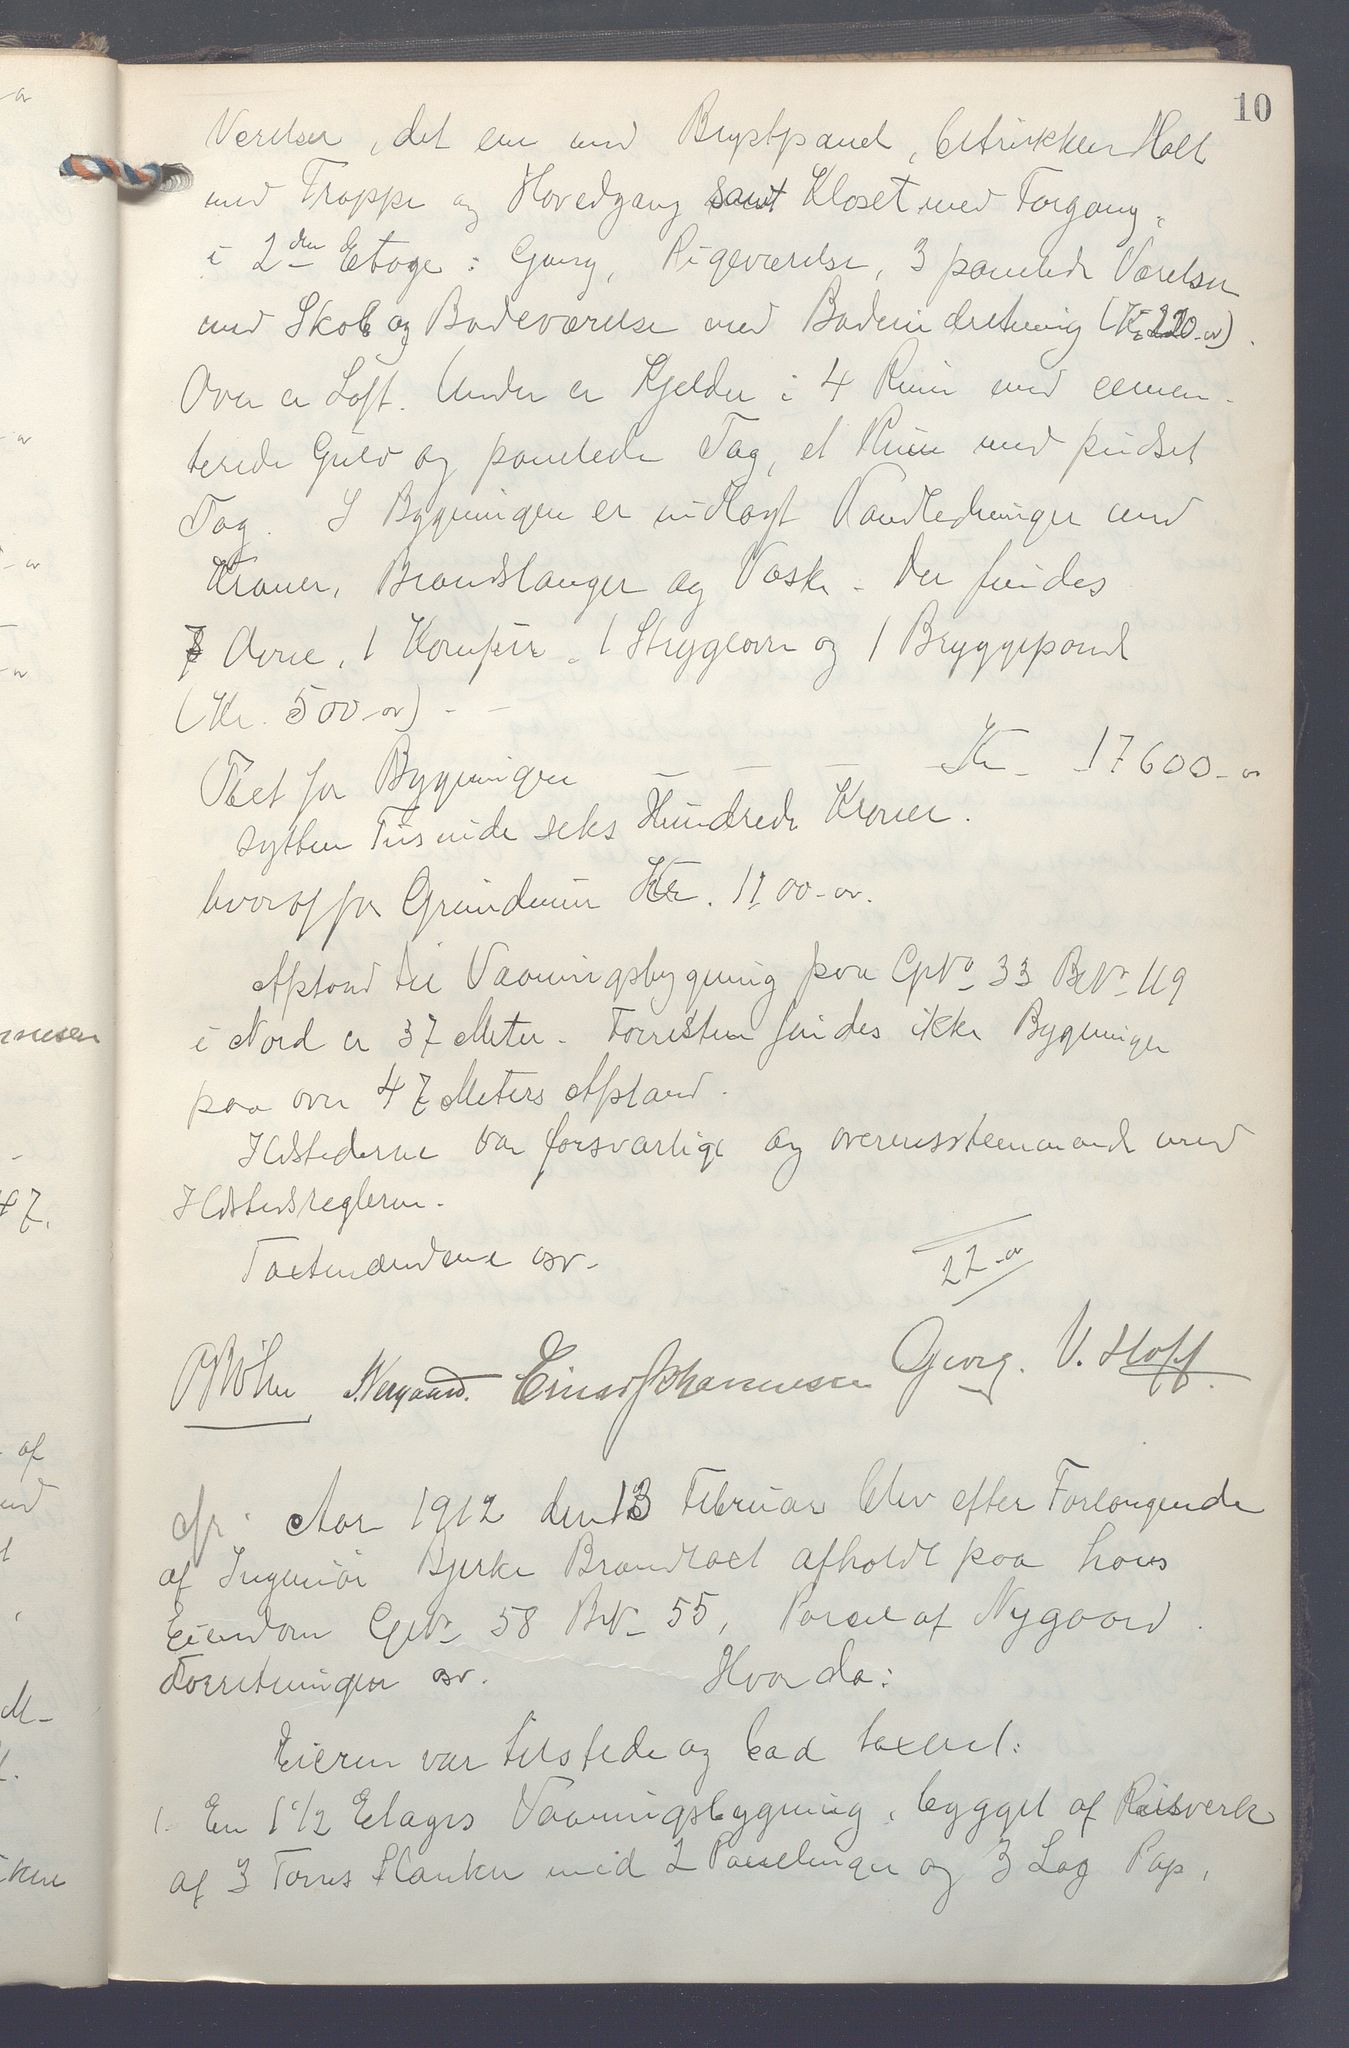 10
Værelser, det ene med Brystpanel, betrukken Hall
med Trappe og Hovedgang samt Kloset med Forgang,
i 2den Etage: Gang, Pigeværelse, 3 panelede Værelser
med Skab og Badeværelse med Badeindretning (Kr 220-ør).
Over er Loft. Under er Kjelder i 4 Rum med cemen-
terede Gulv og panelede Tag, et Rum med pudset
Tag. I Bygningen er indlagt Vandledninger med
Kraner, Brandslanger og Vaske. Der findes
7 Ovne, 1 Komfur, 1 Strygeovn og 1 Bryggepande
(Kr. 500-ør) - -
Taxt for Bygningen - - - Kr - 17600-ør
sytten Tusinde seks Hundrede Kroner.
hvoraf for Grundmur Kr. 1100-ør.
Afstand til Vaaningsbygning paa GNo 33 BNo 119
i Nord er 37 Meter. Forresten findes ikke Bygninger
paa over 47 Meters Afstand.
Ildstederne var forsvarlige og overensstemmende med
Ildstedsreglerne.
Taxtmændene osv.
22-ør
Nergaard. Einar Johannessen Georg. V. Hoff.
Afr. Aar 1912 den 13 Februar blev efter Forlangende
af Ingeniør Bjerke Brandtaxt afholdt paa hans
Eiendom GNo 58 BNo 55, Parcel af Nygaard.
Forretningen osv. Hvor da:
Eieren var tilstede og bad taxeret:
1. En 1 1/2 Etages Vaaningsbygning, bygget af Reisverk
af 3 Toms Planker med 2 Panelinger og 3 Lag Pap,